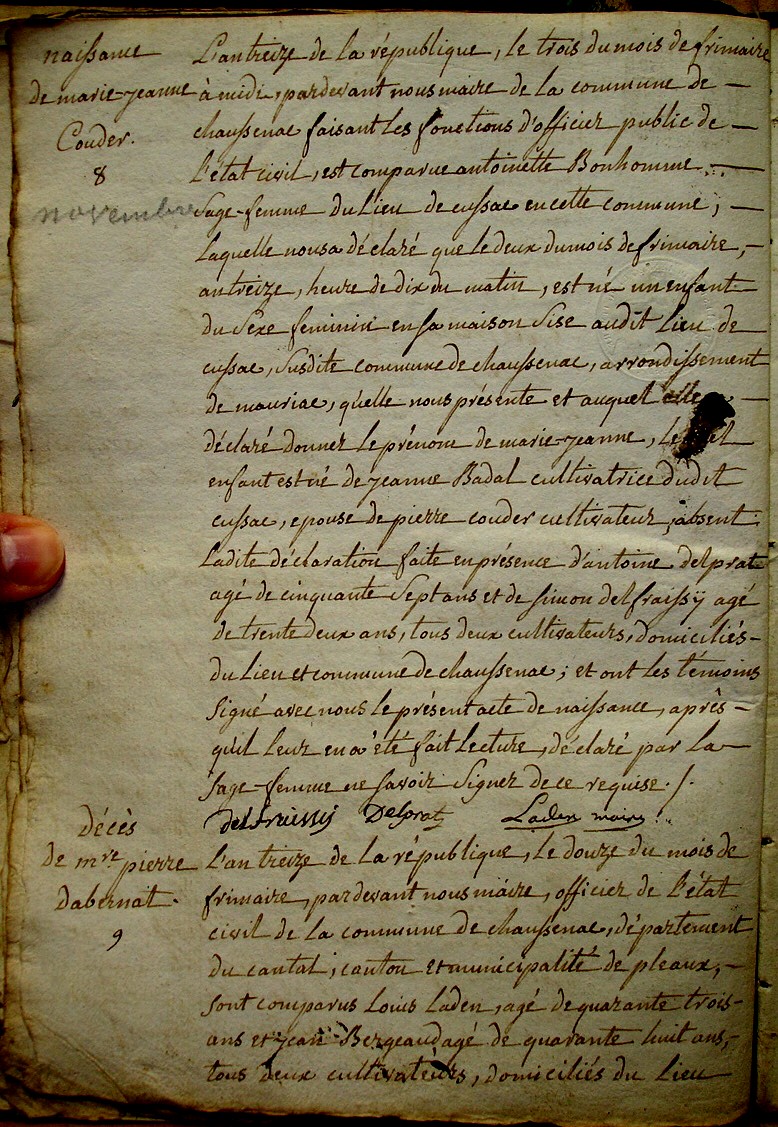 naissance
de marie-jeanne
Couder.
8
novembre
L'an treize de la république, le trois du mois de frimaire
à midi, pardevant nous maire de la commune de —
chaussenac faisant les fonctions d'officier public de —
l'état civil, est comparue antoinette Bonhomme —
sage-femme du Lieu de cussac en cette commune ; —
Laquelle nous a déclaré que le deux du mois de frimaire, —
an treize, heure de dix du matin, est né un enfant
du sexe feminin en sa maison sise audit Lieu de
cussac, susdite commune de chaussenac, arrondissement
de mauriac, qu'elle nous présente et auquel elle —
déclaré donner le prénom de marie-jeanne,
enfant est né de jeanne Badal cultivatrice dudit
cussac, epouse de pierre couder cultivateur, absent.
Ladite déclaration faite en présence d'antoine delprat
agé de cinquante sept ans et de simon delfraissÿ agé
de trente deux ans, tous deux cultivateurs, domiciliés -
du Lieu et commune de chaussenac ; et ont les témoins
signé avec nous le présent acte de naissance, après -
qu'il leur en a été fait Lecture, déclaré par la
sage-femme ne savoir signer de ce requise ./.
delfraissÿ Delprat Laden maire
décès
de mre. pierre
Dabernat.
9
L'an treize de la république, le douze du mois de
frimaire, pardevant nous maire, officier de l'état
civil de la commune de chaussenac, département
du cantal, canton et municipalité de pleaux, -
sont comparus Louis Laden, agé de quarante trois -
ans et jean Bergeaud agé de quarante huit ans, -
tous deux cultivateurs, domiciliés du Lieu